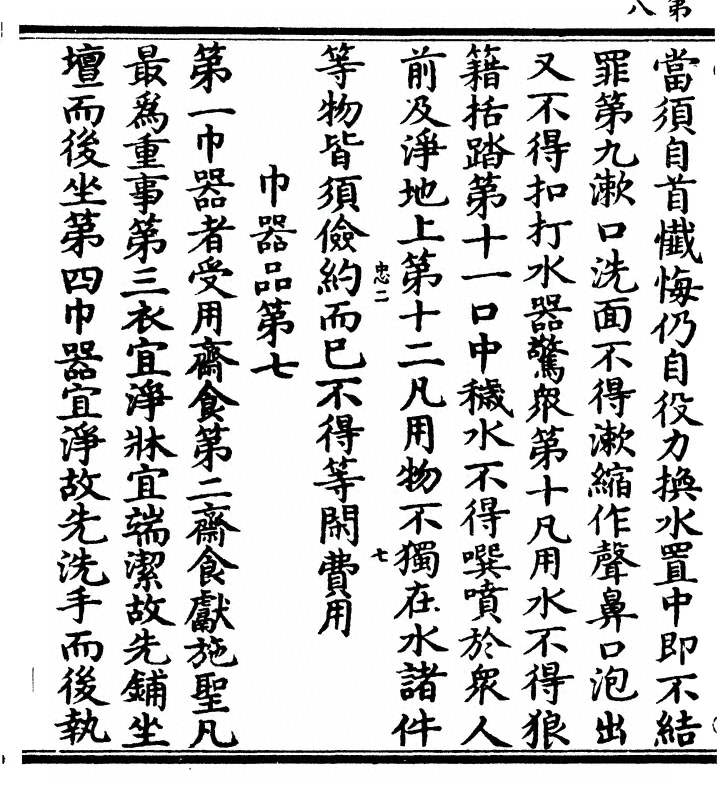 第八
當須自首懺悔仍自役力換水置中即不結
罪第九漱口洗面不得漱縮作聲鼻口泡出
又不得扣打水器驚衆第十凡用水不得狼
籍括踏第十一口中穢水不得噀噴於衆人
前及淨地上第十二凡用物不獨在水諸件
忠二
七
等物皆須儉約而已不得等閑費用
巾器品第七
第一巾器者受用齋食第二齋食獻施聖凡
最爲重事第三衣宜淨牀宜端潔故先鋪坐
壇而後坐第四巾器宜淨故先洗手而後執